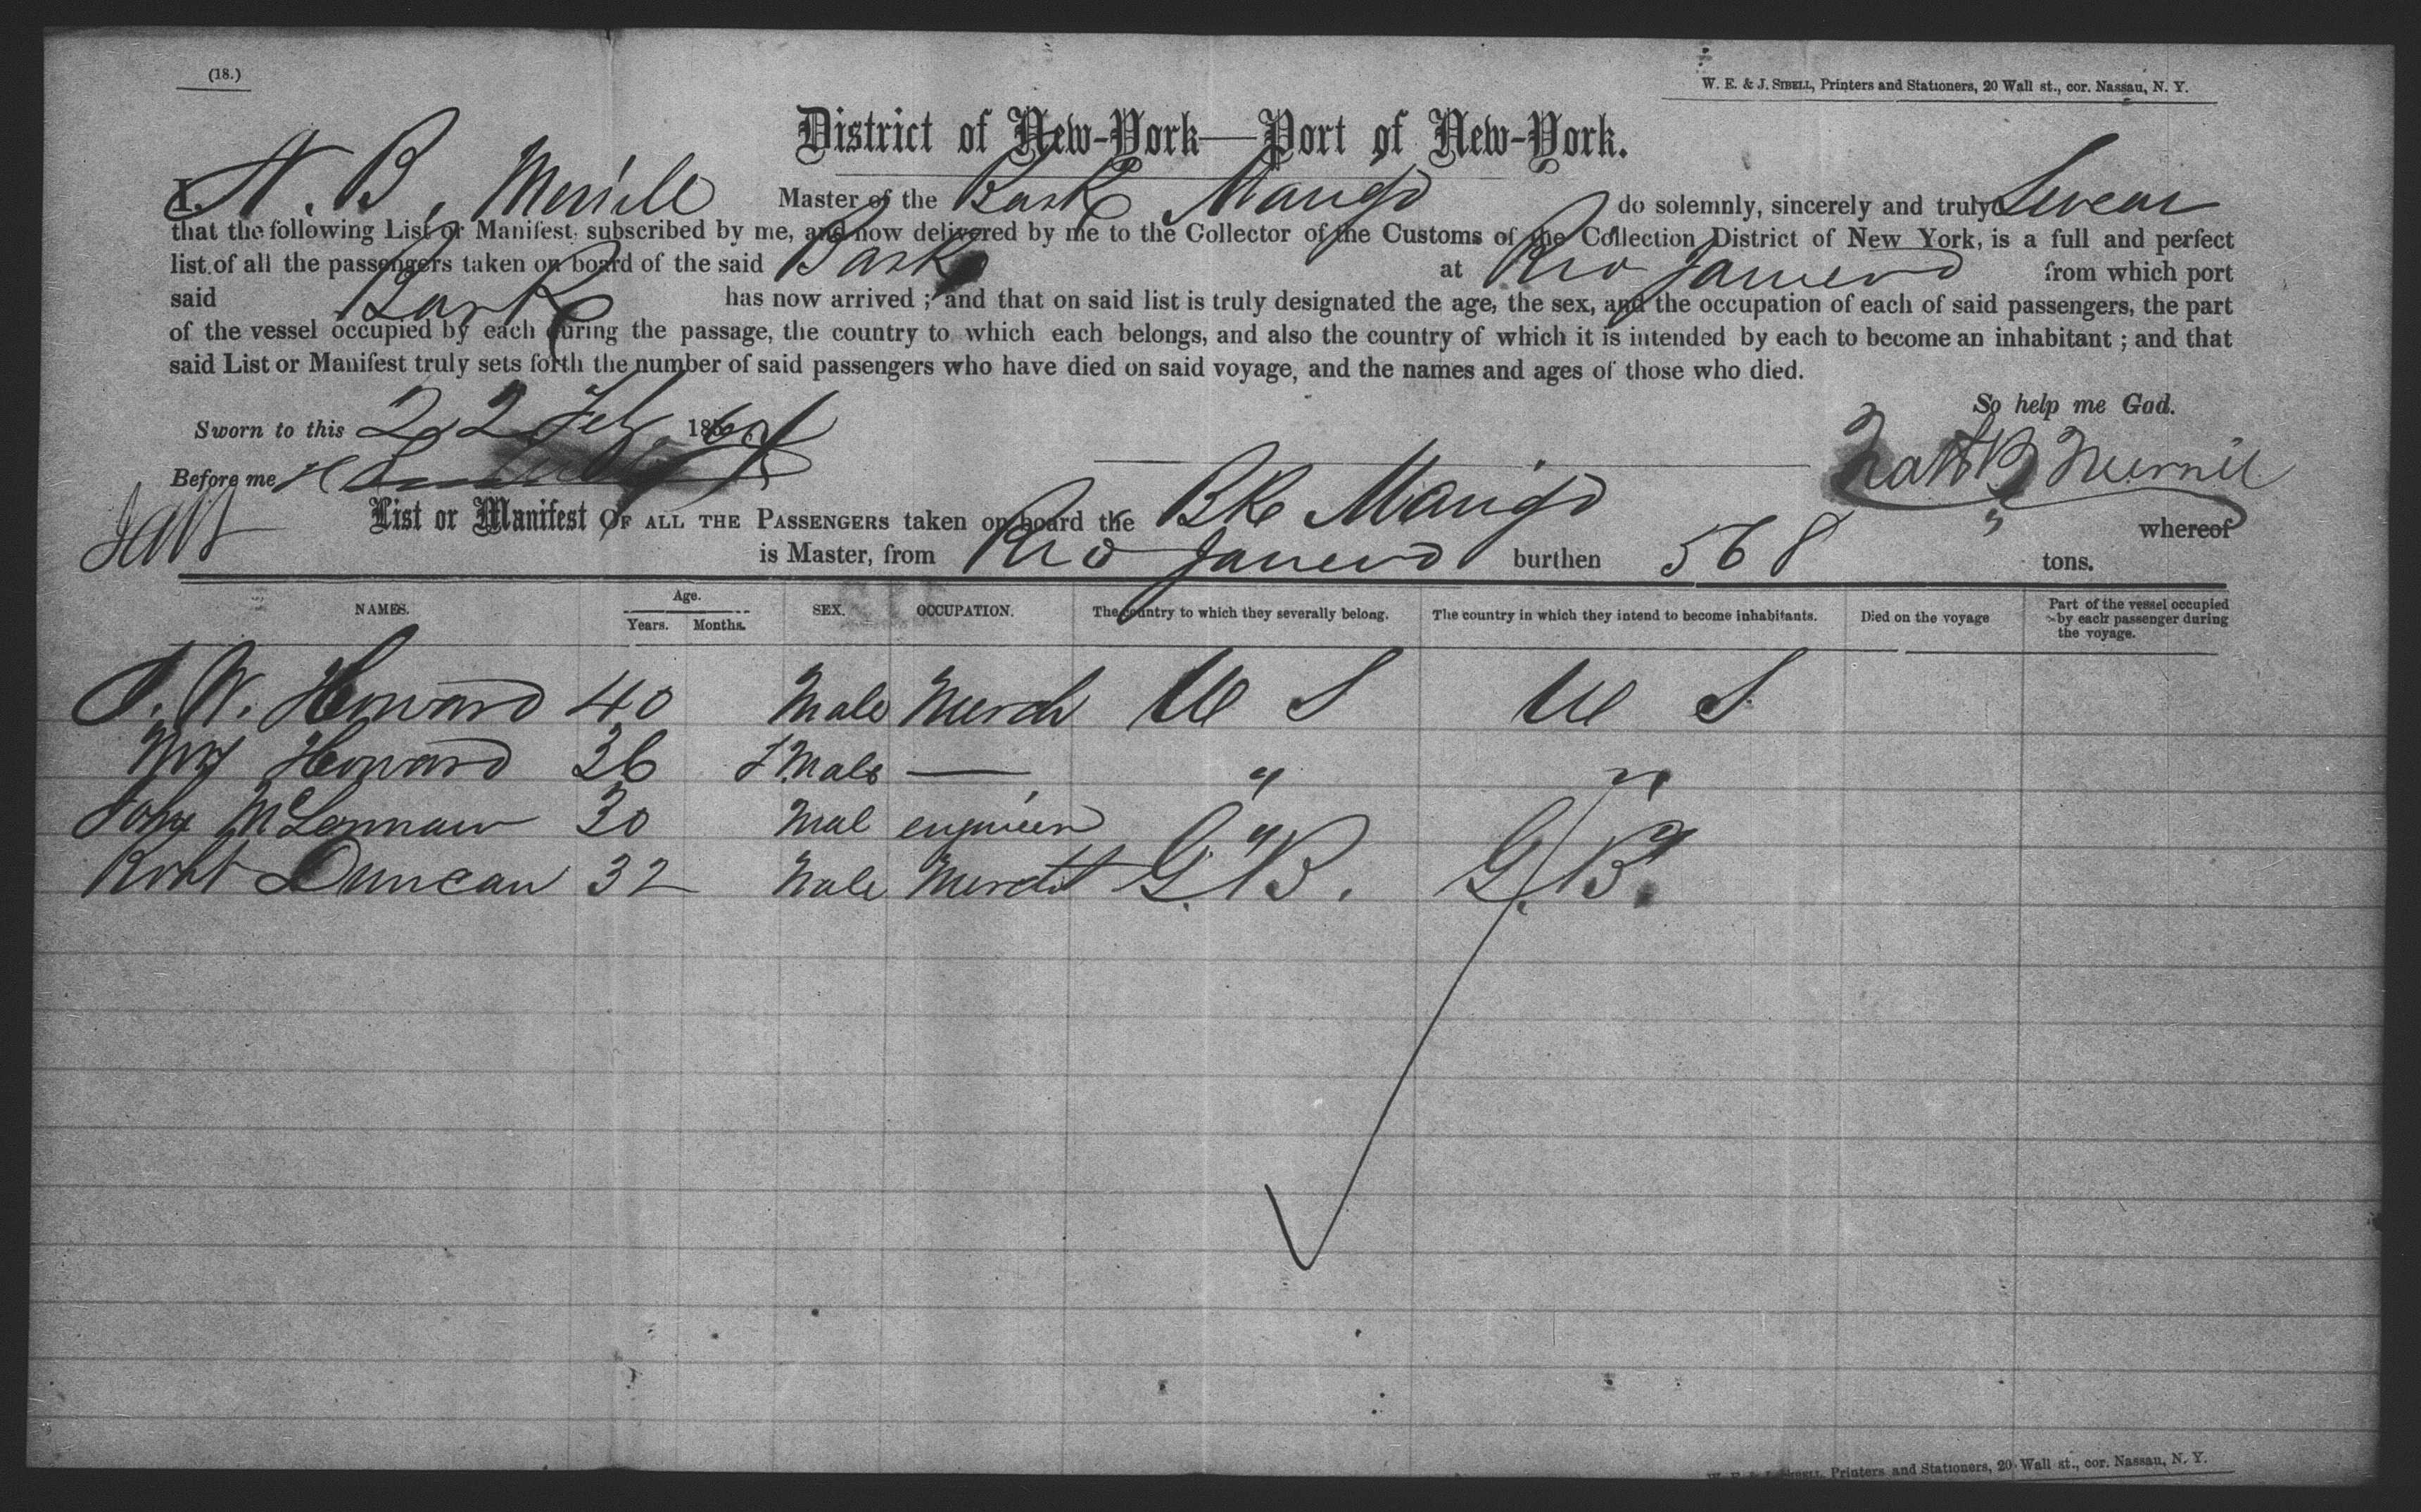 (18.)
W. E. & J. SIBELL, Printers and Stationers, 20 Wall st., cor. Nassau, N. Y.
District of New-York—Port of New-York.
I, N. B. Merrill Master of the Bark Mango do solemnly, sincerely and truly Swear
that the following List or Manifest, subscribed by me, and now delivered by me to the Collector of the Customs of the Collection District of New York, is a full and perfect
list of all the passengers taken on board of the said Bark at Rio Janeiro from which port
said Bark has now arrived; and that on said list is truly designated the age, the sex, and the occupation of each of said passengers, the part
of the vessel occupied by each during the passage, the country to which each belongs, and also the country of which it is intended by each to become an inhabitant; and that
said List or Manifest truly sets forth the number of said passengers who have died on said voyage, and the names and ages of those who died.
So help me God.
Sworn to this 22 Feby 186
Before me
Nath B Merrill
List or Manifest OF ALL THE PASSENGERS taken on board the Bk Mango whereof
is Master, from Rio Janeiro burthen 568 tons.
NAMES. Age. Years. Months. SEX. OCCUPATION. The country to which they severally belong. The country in which they intend to become inhabitants. Died on the voyage Part of the vessel occupied by each passenger during the voyage.
J. W. Howard 40 Male Merch U S U S
Mrs Howard 36 F Male — " "
John McLennan 30 Mal engineer " "
Robt Duncan 32 Male Mercht G. B. G. B.
W. E. & J. SIBELL, Printers and Stationers, 20 Wall st., cor. Nassau, N. Y.